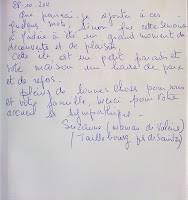 28.10.2011
Que pourrai je ajouter à ces
quelques mots, sinon que cette semaine
à été un grand moment de
découverte et de plaisir.
Cette île est un petit paradis et
votre maison un havre de paix
et de repos.
pleins de bonnes choses pour vous
et votre famille, merci pour votre
accueil si sympathique.
Suzanne (maman de Valérie)
(Taillebourg près de Saintes)